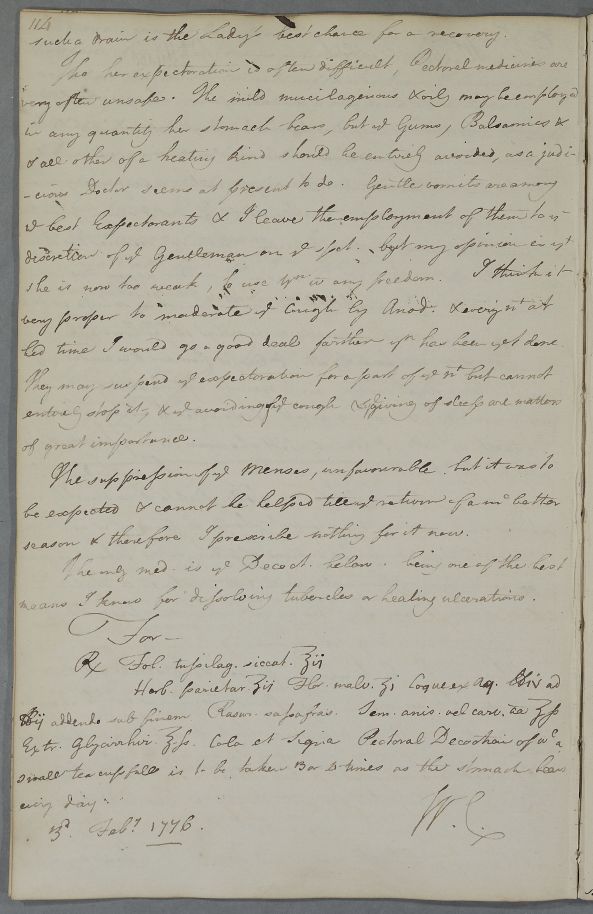 114
such a Train is the Lady's best chance for a recovery.
Tho her expectoration is often difficult, Pectoral medicines are
very often unsafe. The mild mucilaginous & oily may be employ'd
in any quantity her stomach bears, but yͤ Gums, Balsamics &
& all other of a heating kind should be entirely avoided, as a judi-
-cious Doctor seems at present to do. Gentle vomits are among
yͤ best Expectorants & I leave the employment of them to yͤ
discretion of yͤ Gentleman on yͤ spot. but my opinion is yͭ
she is now too weak, to use yͫ in any freedom. I think it
very proper to moderate yͤ Cough by Anod. & every nͭ at
bed time I would go a good deal farther yⁿ has been yet done.
They may suspend yͤ expectoration for a part of yͤ nͭ but cannot
entirely stop it, & yͤ avoiding of yͤ cough & giving of sleep are matters
of great importance.
The suppression of yͤ Menses, unfavourable but it was to
be expected & cannot be helped till yͤ return of a mͦ better
season & therefore I prescribe nothing for it now.
The only med. is yͤ Decoct. below. being one of the best
means I know for dissolving tubercles or healing ulcerations.
For —
℞ Fol. tussilag. siccat. ʒij
Herb. parietar ʒij Flor. malv. ʒi Coque ex aq. ℔iv ad
℔ij addendo sub finem Rasur. sassafras. Sem. anis. vel carv. āā ʒß
Extr. Glycirrhiz. ʒß. Cola et Signa Pectoral Decoction of wͨ a
small tea cup full is to be taken 3 or 4 times as the stomach bears
every day:
3ᵈ. Febʸ 1776.
W. C.